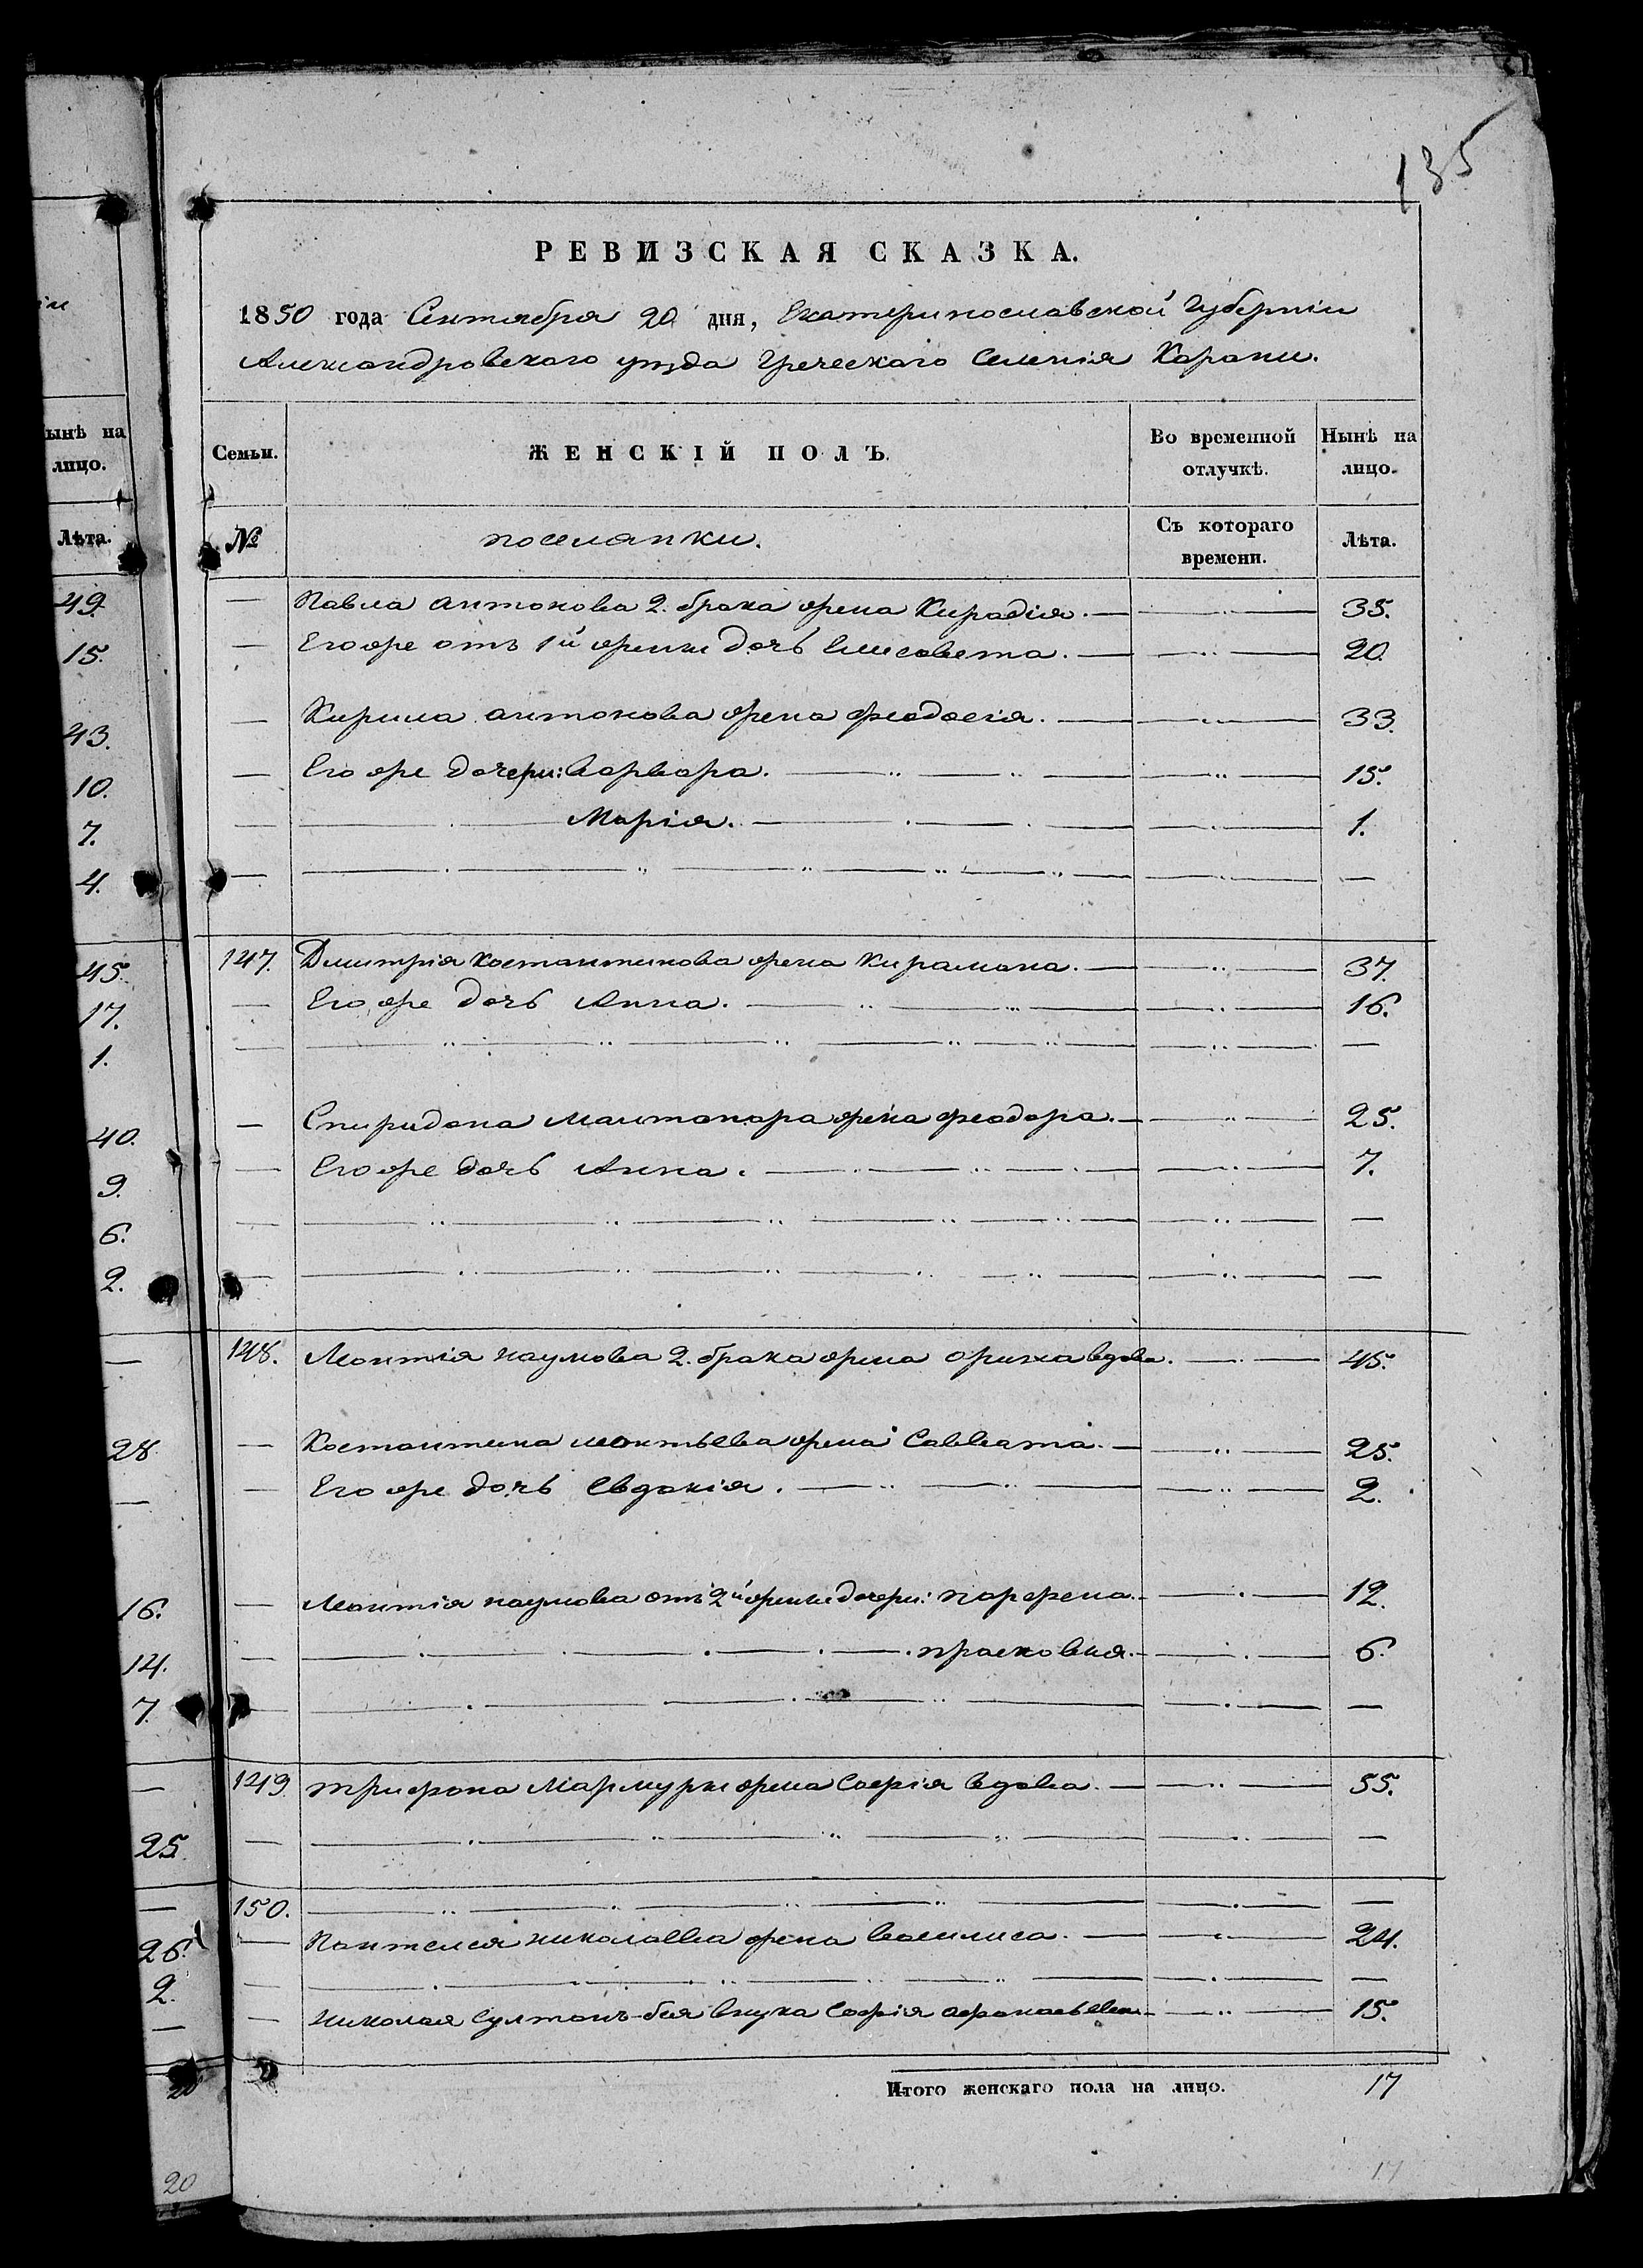 135
РЕВИЗСКАЯ СКАЗКА.
1850 года Сентября 20 дня, Екатеринославской Губерніи
Александровскаго уѣзда Греческаго Селенія Карани.
Семьи. ЖЕНСКІЙ ПОЛЪ. Во временной отлучкѣ. Нынѣ на лицо.
№ поселянки. Съ котораго времени. Лѣта.
— Павла Антонова 2. брака жена Кирадія. — 35.
— Его же отъ 1й женки дочь Елисавета. — 20.
— Кирила Антонова жена Феодосія. — 33.
— Его же дочери: Варвара. — 15.
— Марія. — 1.
147. Дмитрія Костантинова жена Кирамана. — 37.
— Его же дочь Анна. — 16.
— Спиридона жена Феодора. — 25.
— Его же дочь Анна. — 7.
148. Леонтія Наумова 2. брака жена Орина вдова. — 45.
— Костантина Леонтьева жена — 25.
— Его же дочь Евдокія. — 2.
— Леонтія Наумова отъ 2й женки дочери: Парфена. — 12.
— Прасковия. — 6.
149. Трифона Мармуры жена Софія вдова. — 55.
150. —
— Пантелея Николаева жена Василиса. — 24.
— Николая Султанъ-бея внука Софія Афонасьева — 15.
Итого женскаго пола на лицо. 17
17
ынѣ на
лицо.
Лѣта.
49.
15.
43.
10.
7.
4.
45.
17.
1.
40.
9.
6.
2.
—
28.
—
16.
14.
7.
—
25.
—
26.
2.
—
20
20